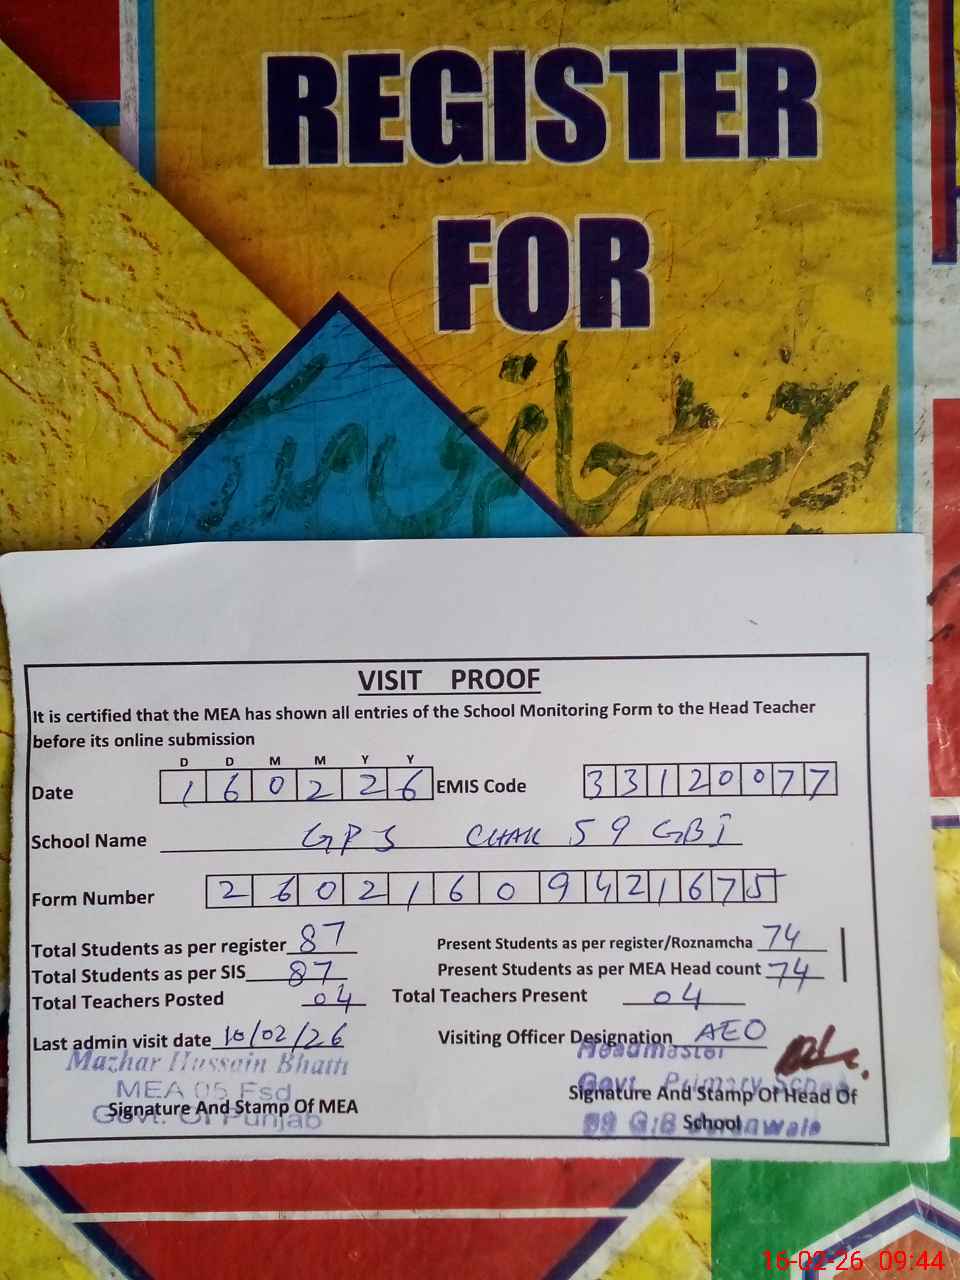 REGISTER
FOR
رجسٹر حاضری مدرسین
VISIT PROOF
It is certified that the MEA has shown all entries of the School Monitoring Form to the Head Teacher
before its online submission
D D M M Y Y
Date 160226 EMIS Code 33120077
School Name GPS CHAK 59 GBI
Form Number 26021609421675
Total Students as per register 87 Present Students as per register/Roznamcha 74
Total Students as per SIS 87 Present Students as per MEA Head count 74
Total Teachers Posted 04 Total Teachers Present 04
Last admin visit date 10/02/26 Visiting Officer Designation AEO
Mazhar Hussain Bhatti
MEA 05 Fsd
Govt. Of Punjab
Signature And Stamp Of MEA
Headmaster
Govt. Primary School
59 G.B
Signature And Stamp Of Head Of
School
16-02-26 09:44